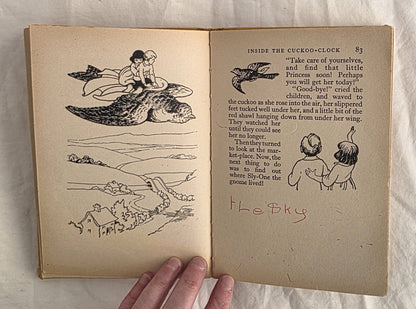 INSIDE THE CUCKOO-CLOCK 83
"Take care of yourselves,
and find that little
Princess soon! Perhaps
you will get her today!"
"Good-bye!" cried the
children, and waved to
the cuckoo as she rose into the air, her slippered
feet tucked well under her, and a little bit of the
red shawl hanging down from under her wing.
They watched her
until they could see
her no longer.
Then they turned
to look at the mar-
ket-place. Now, the
next thing to do
was to find out
where Sly-One the
gnome lived!
the Sky